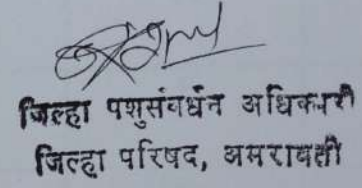 जिल्हा पशुसंवर्धन अधिकारी
जिल्हा परिषद, अमरावती